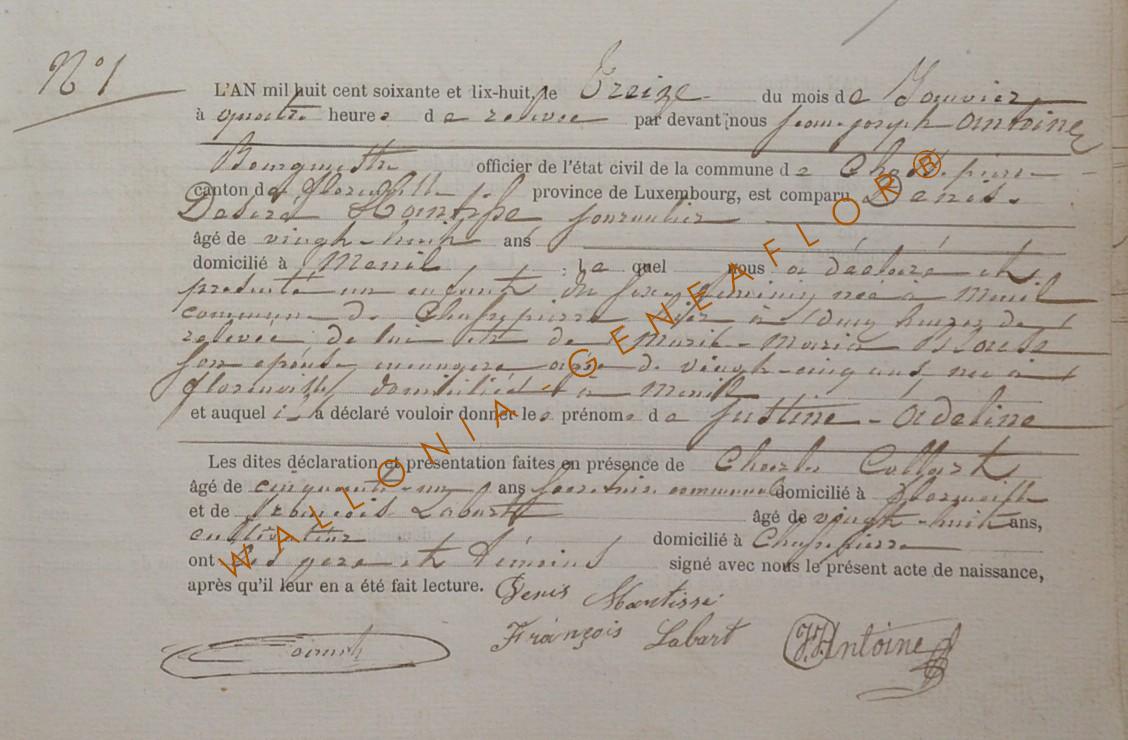 N° 1
L'AN mil huit cent soixante et dix-huit, le Treize du mois de Janvier
à quatre heures de relevée par devant nous Jean-Joseph Antoine
Bourgmestre officier de l'état civil de la commune de Chassepierre
canton de Florenville province de Luxembourg, est comparu Denis
Désiré journalier
âgé de vingt-huit ans
domicilié à Menil ; lequel nous a déclaré et
présenté un enfant du sexe féminin né à Menil
commune de Chassepierre hier à heures de
relevée de lui et de Marie-Maria
son épouse ménagère agée de vingt-cinq ans, née à
florenville domiciliée à Menil
et auquel il a déclaré vouloir donner les prénoms de Justine-Adeline
Les dites déclaration et présentation faites en présence de Charles Collart
âgé de cinquante-un ans secrétaire communal domicilié à Florenville
et de François Labart âgé de vingt-huit ans,
cultivateur domicilié à Chassepierre
ont les père et témoins signé avec nous le présent acte de naissance,
après qu'il leur en a été fait lecture. Denis Mantisse
François Labart J.J. Antoine
WALLONIA - GENEAFLOR®